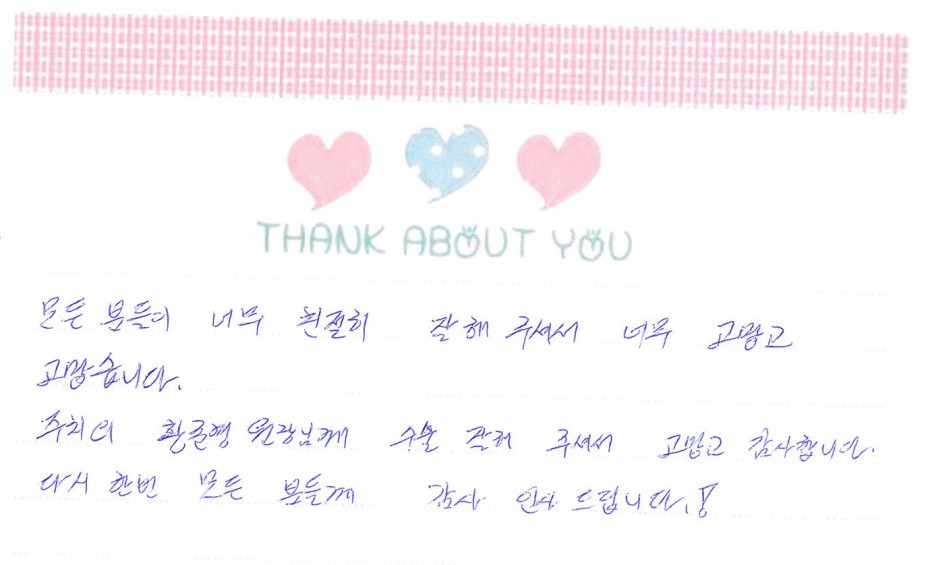 THANK ABOUT YOU
모든 분들이 너무 친절히 잘해 주셔서 너무 고맙고
고맙습니다.
주치의 황준영 원장님께 수술 잘해 주셔서 고맙고 감사합니다.
다시 한번 모든 분들께 감사 인사 드립니다.!